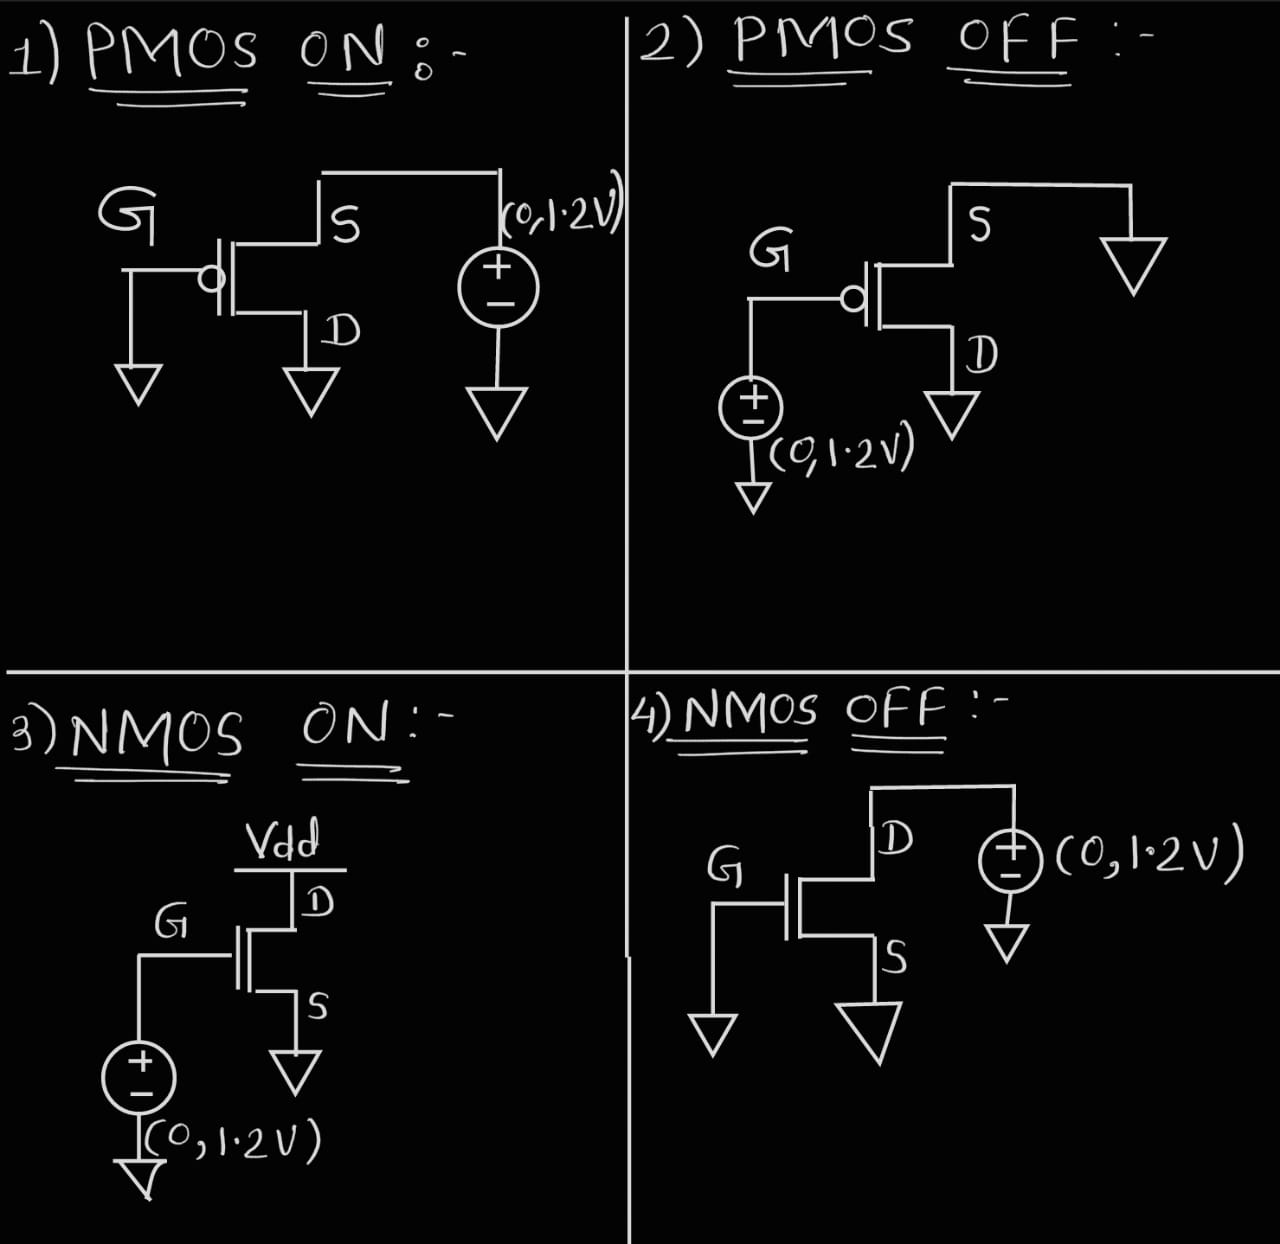 1) PMOS ON :-
G
S
(0,1.2V)
+
-
D
2) PMOS OFF :-
S
G
D
+
-
(0,1.2V)
3) NMOS ON :-
Vdd
D
G
S
+
-
(0,1.2V)
4) NMOS OFF :-
D
G
+
-
(0,1.2V)
S